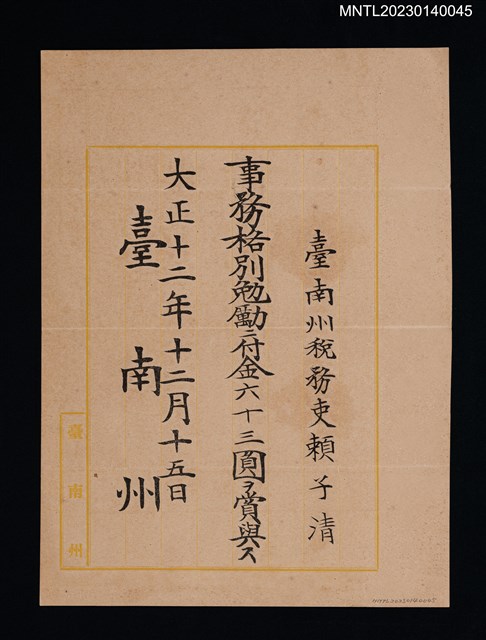 MNTL20230140045
臺南州稅務吏賴子清
事務格別勉勵ニ付金六十三圓ヲ賞與ス
大正十二年十二月十五日
臺南州
臺南州
MNTL20230140045